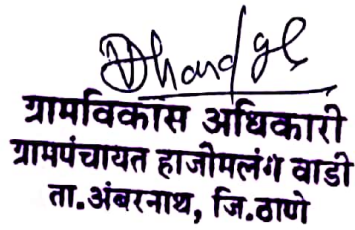 Dhandge
ग्रामविकास अधिकारी
ग्रामपंचायत हाजीमलंग वाडी
ता.अंबरनाथ, जि.ठाणे